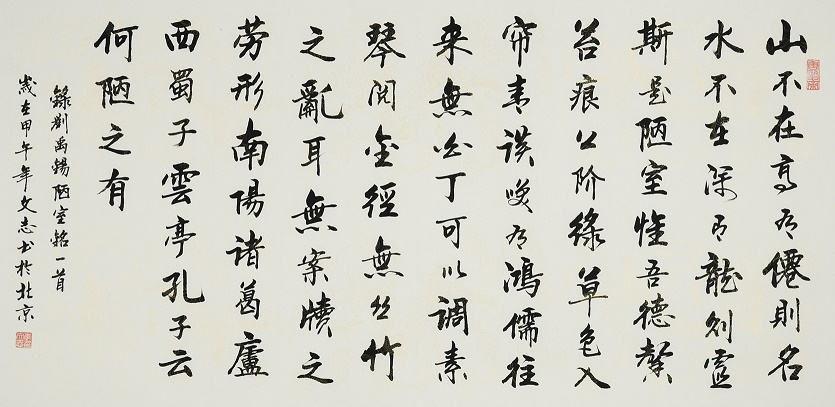 山不在高有僊則名
水不在深有龍則靈
斯是陋室惟吾德馨
苔痕上阶綠草色入
帘青談笑有鴻儒往
来無白丁可以調素
琴閱金經無丝竹
之亂耳無案牘之
劳形南陽諸葛廬
西蜀子雲亭孔子云
何陋之有
錄劉禹錫陋室銘一首
歲在甲午年文志书於北京